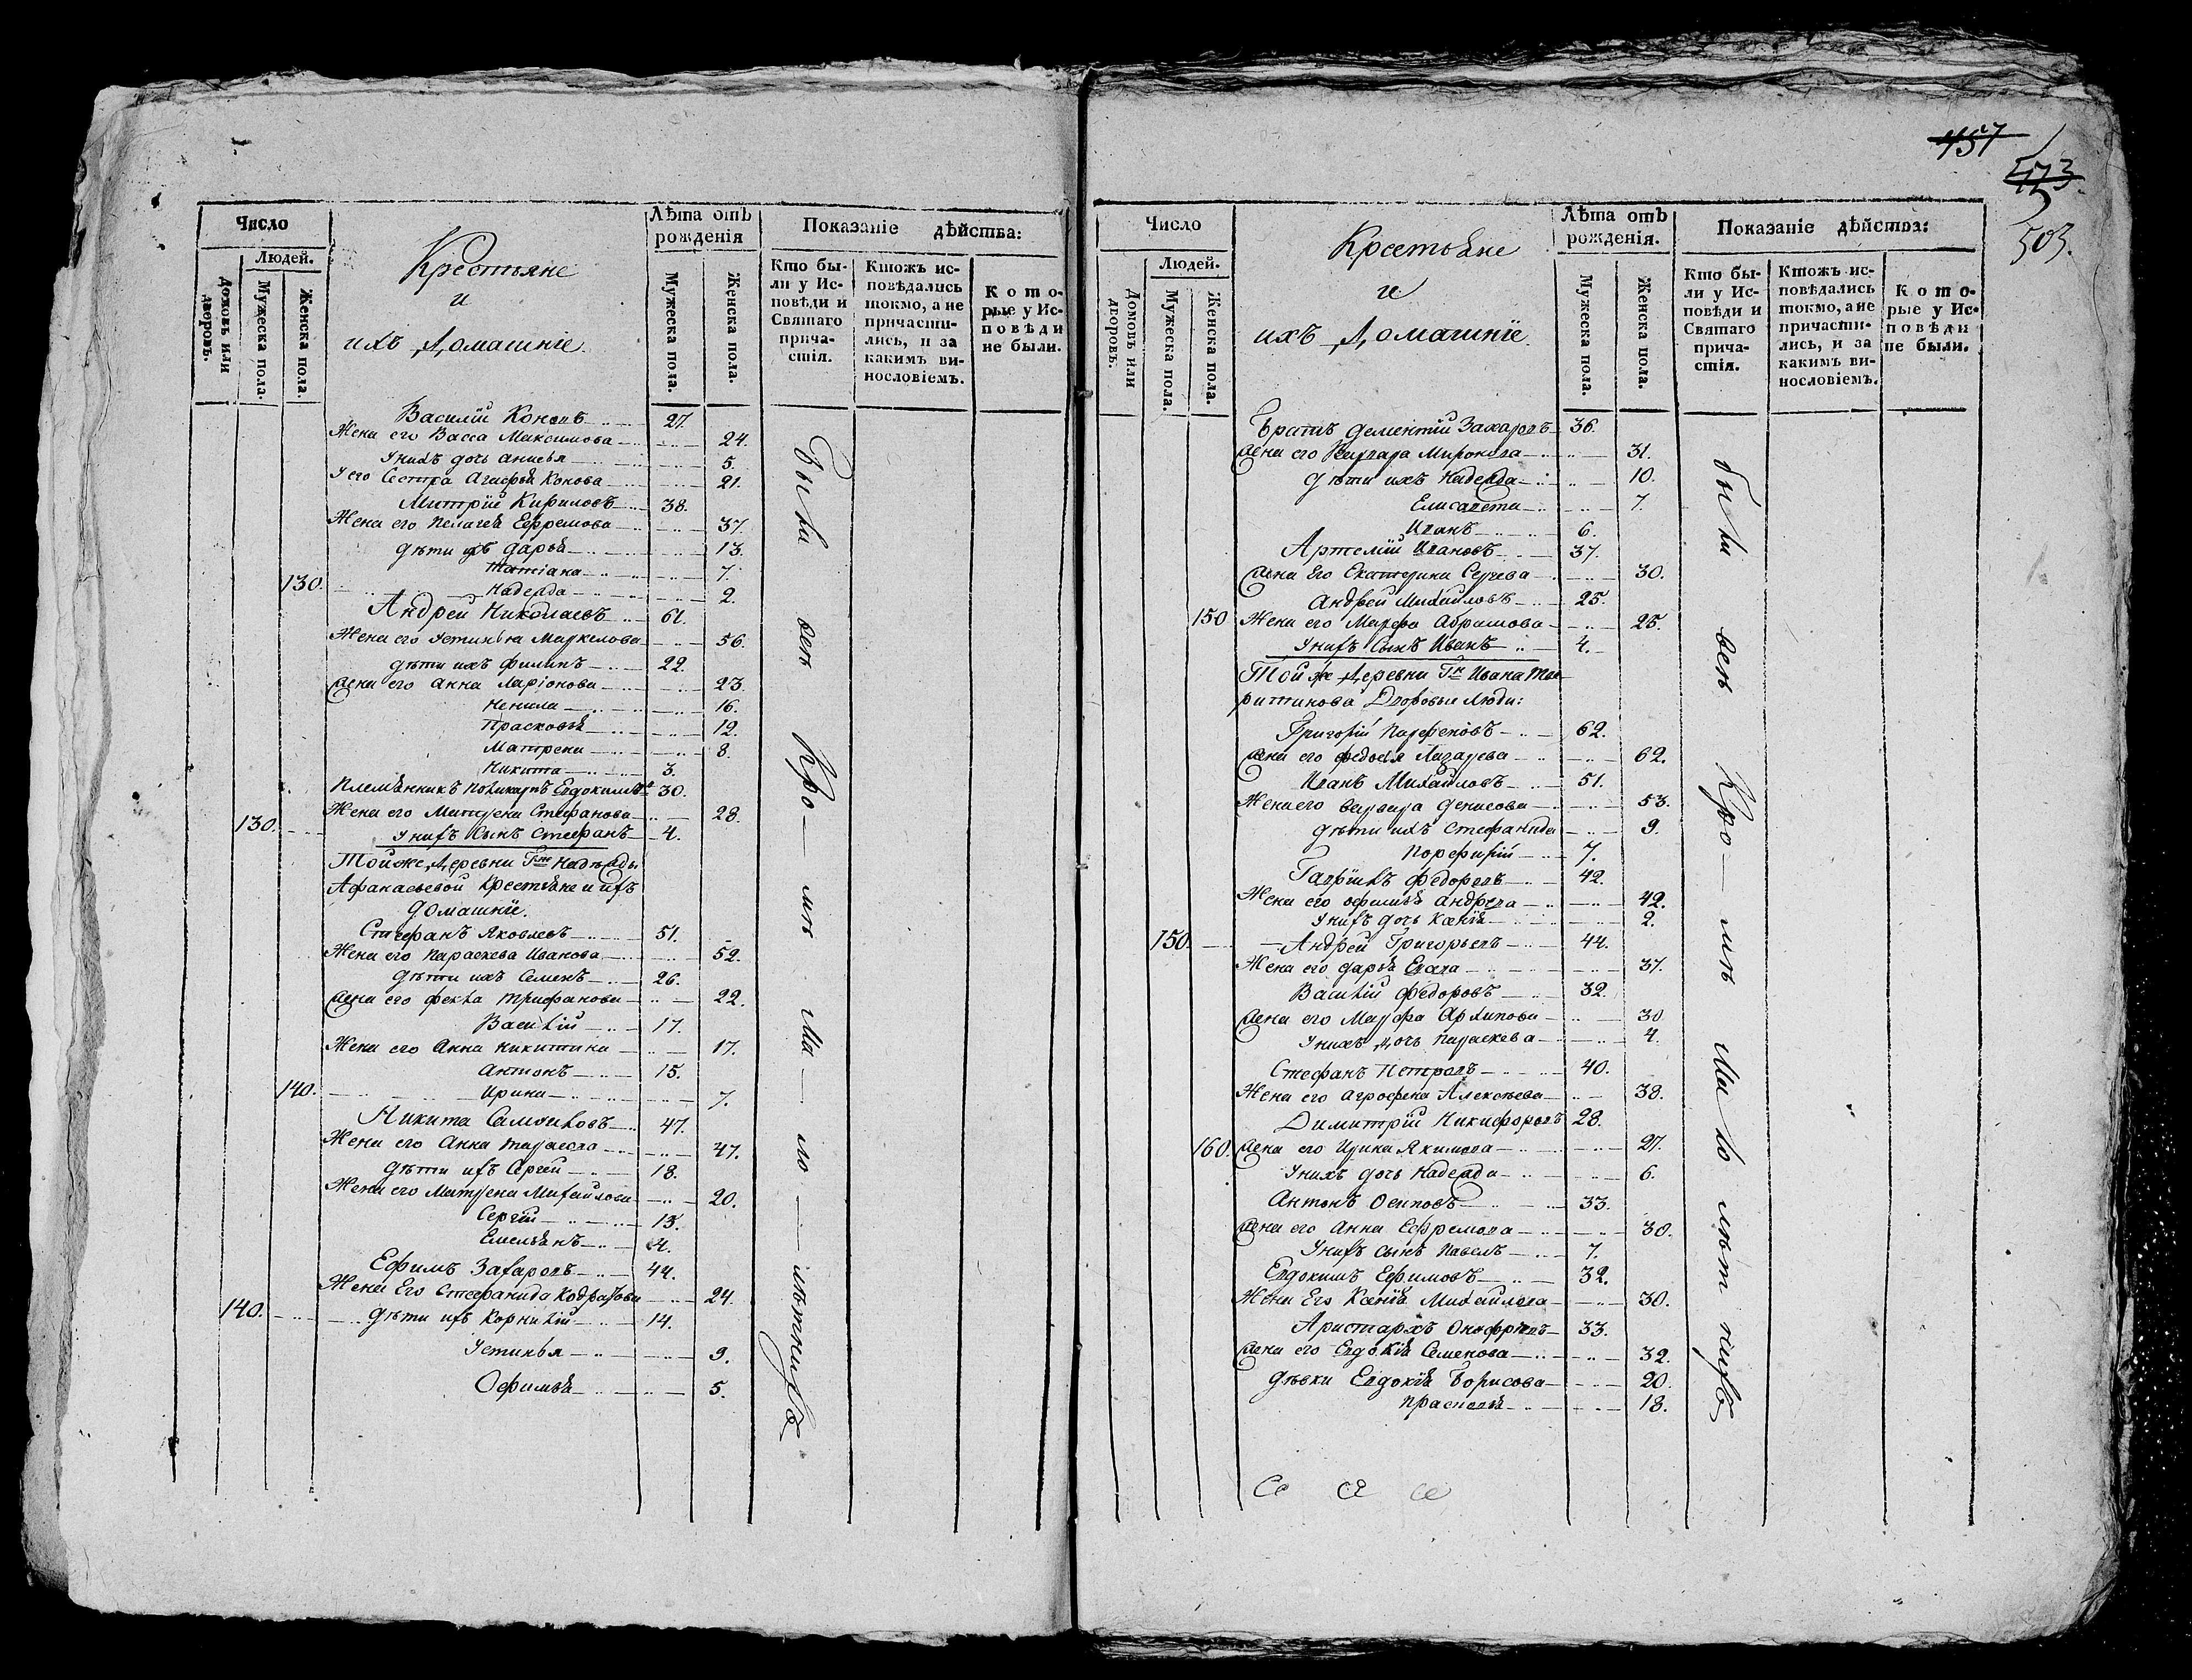 Число
Людей.
Домовъ или дворовъ.
Мужеска пола.
Женска пола.
Крестьяне
и
ихъ Домашніе.
Лѣта отъ рожденія
Мужеска пола.
Женска пола.
Показаніе дѣйства:
Кто бы-
ли у Ис-
повѣди и
Святаго
прича-
стія.
Ктожъ ис-
повѣдались
токмо, а не
причасти-
лись, и за
какимъ ви-
нословіемъ.
Кото-
рые у Ис-
повѣди
не были.
Василій Коновъ 27.
Жена его Васса Максимова 24.
У нихъ дочь Анисья 5.
У его Сестра Агафья Конова 21.
Митрій Кириловъ 38.
Жена его Пелагея Ефремова 37.
дѣти ихъ Дарья 13.
Татіана 7.
130. Надежда 2.
Андрей Николаевъ 61.
Жена его Устинья Маркелова 56.
дѣти ихъ Филипъ 22.
Жена его Анна Ларіонова 23.
Ненила 16.
Прасковья 12.
Матрена 8.
Никита 3.
Племянникъ Поликарпъ Евдокимовъ 30.
Жена его Матрена Стефанова 28.
130. У нихъ Сынъ Стефанъ 4.
Тойже Деревни Гжи Надежды
Афанасьевой Крестьяне и ихъ
домашніе.
Стефанъ Яковлевъ 51.
Жена его Параскева Иванова 52.
дѣти ихъ Семенъ 26.
Жена его Фекла Трифанова 22.
Василій 17.
Жена его Анна Никитина 17.
Антонъ 15.
140. Ирина 7.
Никита Самоиловъ 47.
Жена его Анна Тарасова 47.
дѣти ихъ Аргей 18.
Жена его Матрена Михайлова 20.
Сергій 13.
Емельянъ 4.
Ефимъ Захаровъ 44.
Жена Его Стефанида Кодратова 24.
140. дѣти ихъ Корнилій 14.
Устинья 9.
Офимья 5.
Были всѣ Кро-мѣ Ма-ло-лѣтнихъ
457
473
503.
Число
Людей.
Домовъ или дворовъ.
Мужеска пола.
Женска пола.
Крестьяне
и
ихъ Домашніе.
Лѣта отъ рожденія.
Мужеска пола.
Женска пола.
Показаніе дѣйства:
Кто бы-
ли у Ис-
повѣди и
Святаго
прича-
стія.
Ктожъ ис-
повѣдались
токмо, а не
причасти-
лись, и за
какимъ ви-
нословіемъ.
Кото-
рые у Ис-
повѣди
не были.
Братъ Дементій Захаровъ 36.
Жена его Варвара Миронова 31.
дѣти ихъ Надежда 10.
Елисавета 7.
Иванъ 6.
Артемій Ивановъ 37.
Жена Его Екатерина Сергева 30.
Андрей Михайловъ 25.
150 Жена его Марфа Абрамова 25.
У нихъ Сынъ Иванъ 4.
Той же Деревни Гна Ивана
Дворовые Люди:
Григорій Парфеновъ 62.
Жена его Федосья Лазарева 62.
Иванъ Михайловъ 51.
Жена его Варвара Денисова 53.
дѣти ихъ Стефанида 9.
Порфирій 7.
Гаврійлъ Федоровъ 42.
Жена его Офимья Андрева 42.
У нихъ дочь Ксенія 2.
150. Андрей Григорьевъ 44.
Жена его Дарья 37.
Василій Федоровъ 32.
Жена его Марфа Архипова 30
У нихъ Дочь Параскева 4.
Стефанъ Петровъ 40.
Жена его Агрофена Алексѣева 38.
Димитрій Никифоровъ 28.
160. Жена его Ирина Якимова 27.
У нихъ дочь Надежда 6.
Антонъ Осиповъ 33.
Жена его Анна Ефремова 30.
У нихъ Сынъ Павелъ 7.
Евдокимъ Ефимовъ 32.
Жена Его Ксенія Михайлова 30.
Аристархъ Онофріевъ 33.
Жена его Евдокія Семенова 32.
Дѣвки Евдокія Борисова 20.
Прасковья 18.
Были всѣ Кро-мѣ Мало лѣтнихъ